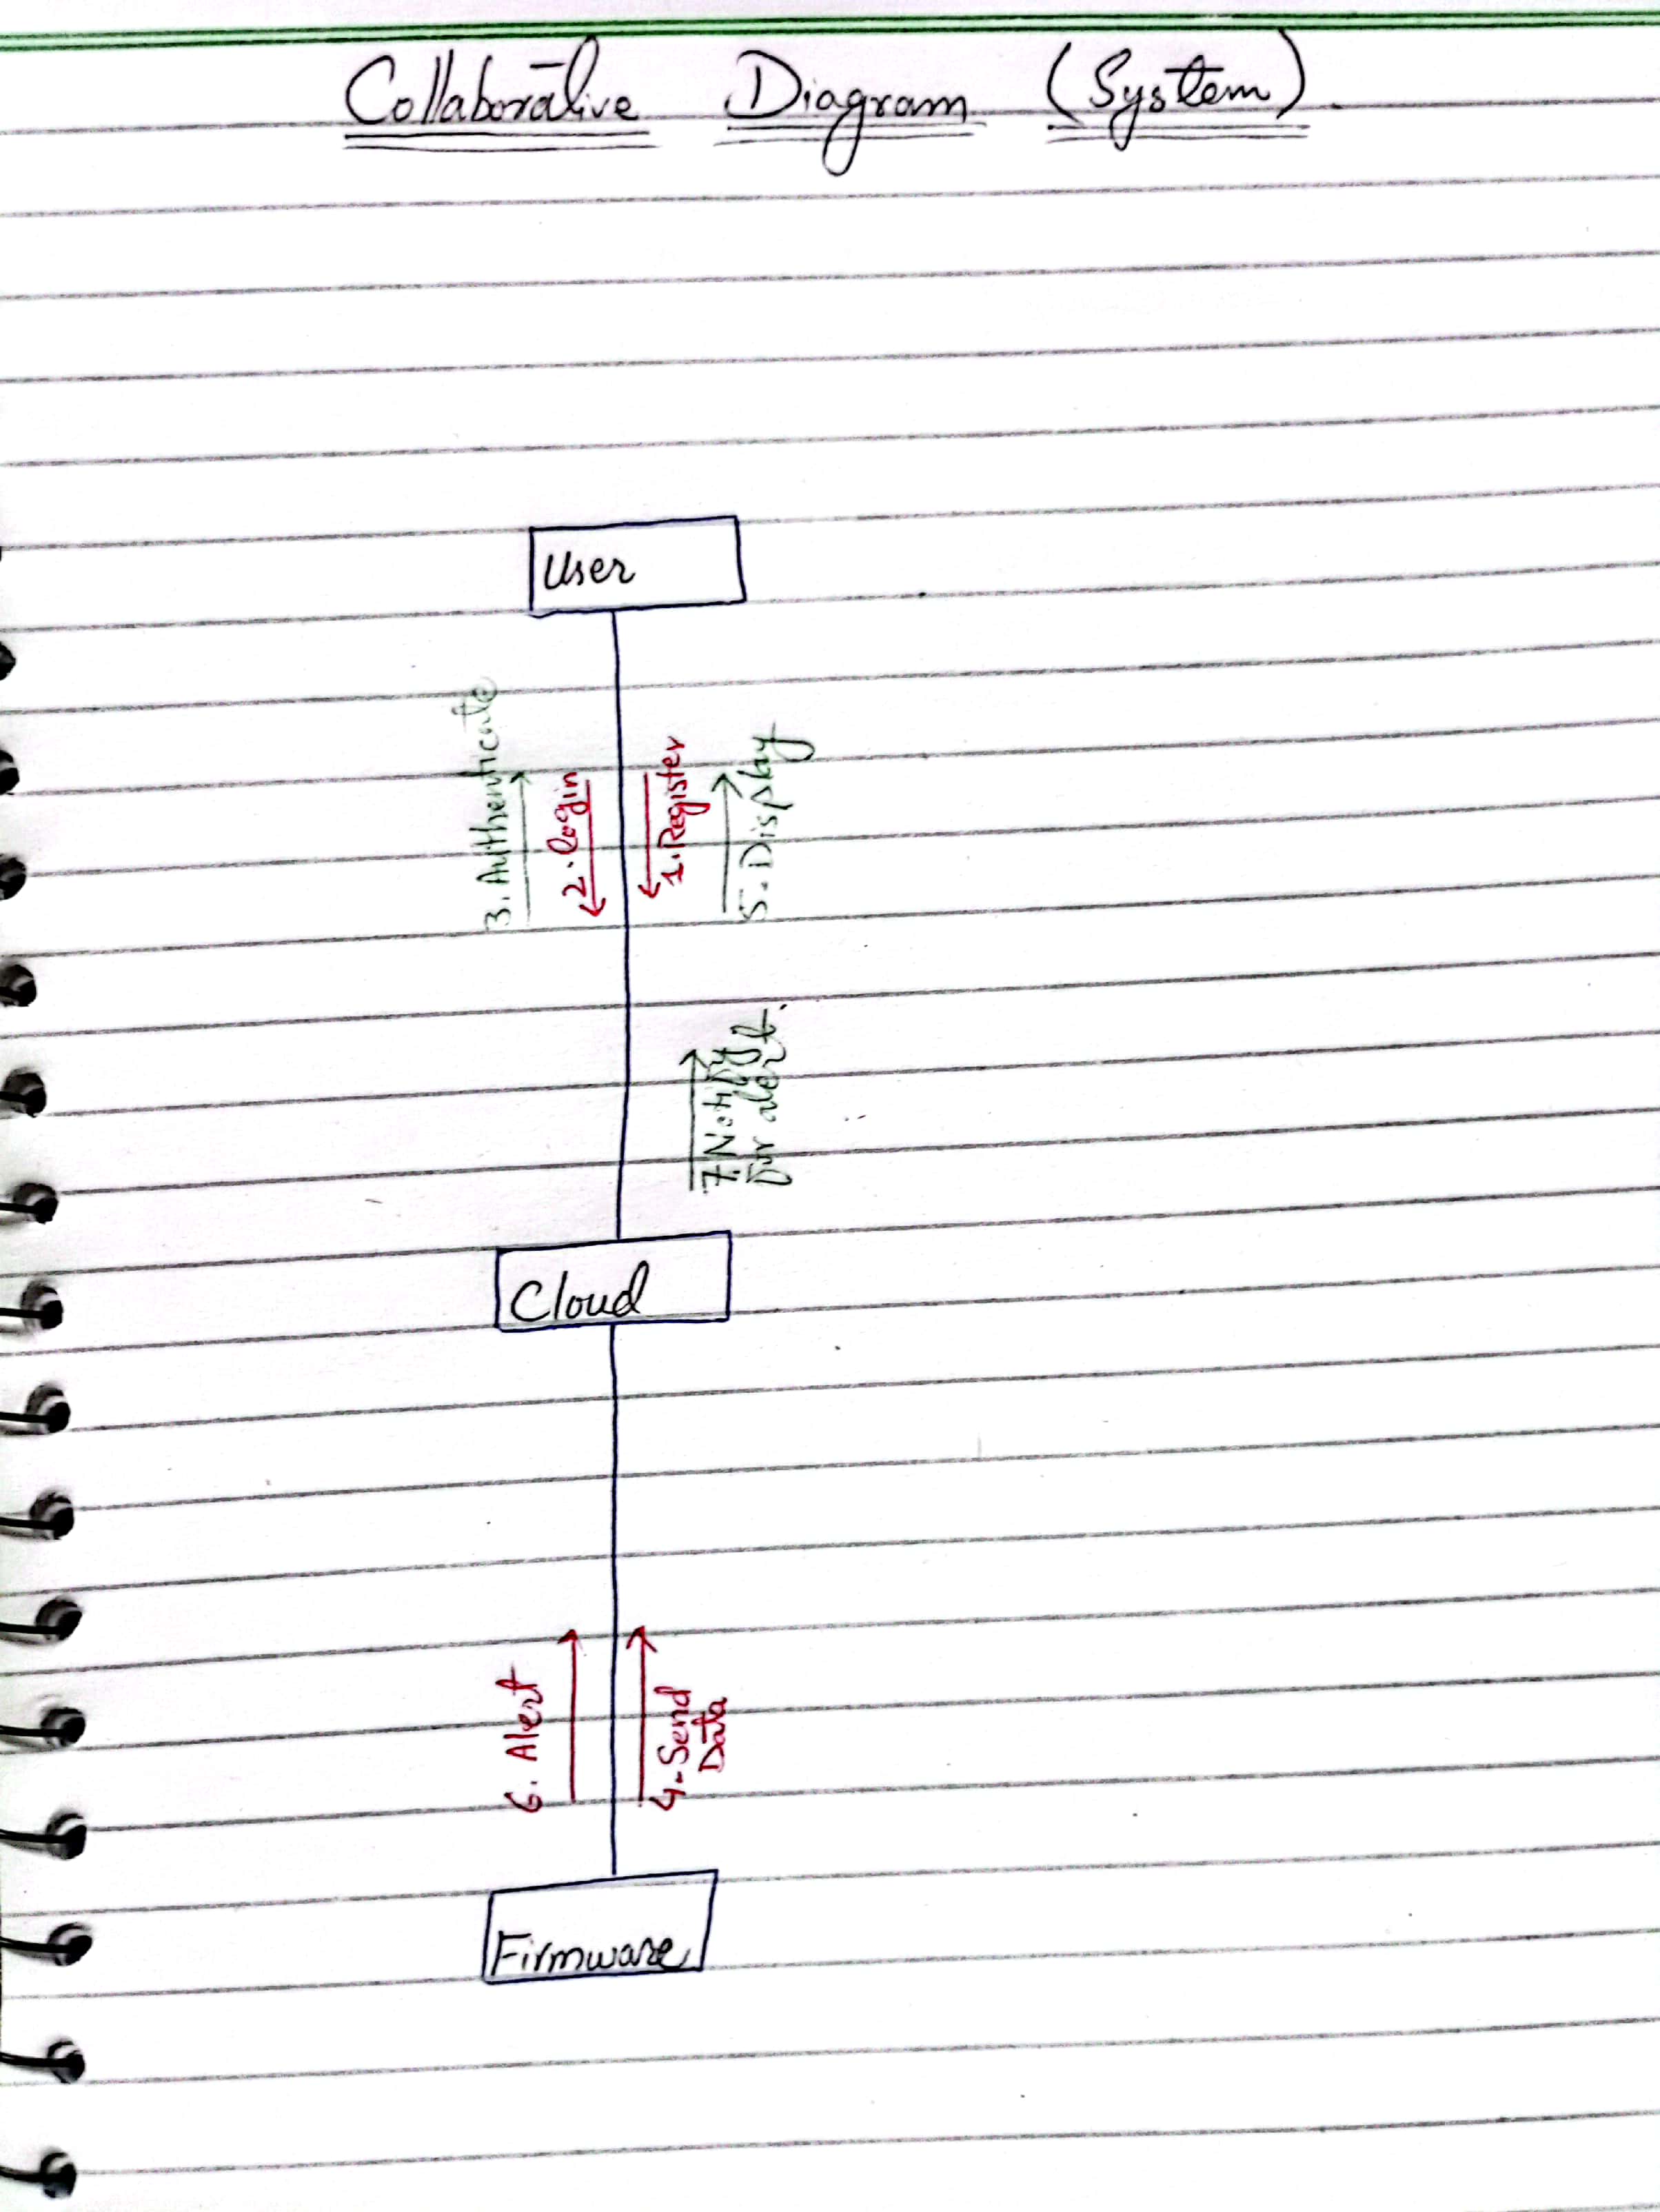 Collaborative Diagram (System).
User
3. Authenticate
2. login
1. Register
5. Display
7. Notify
for alert.
Cloud
6. Alert
4- Send
Data
Firmware